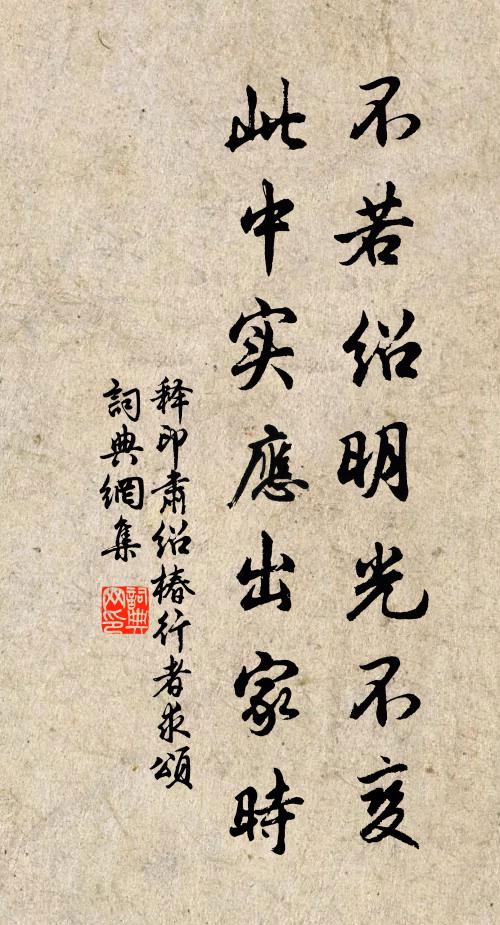 不若绍明光不变
此中实應出家時
释印肃绍椿行者求頌
詞典網集
詞典网印